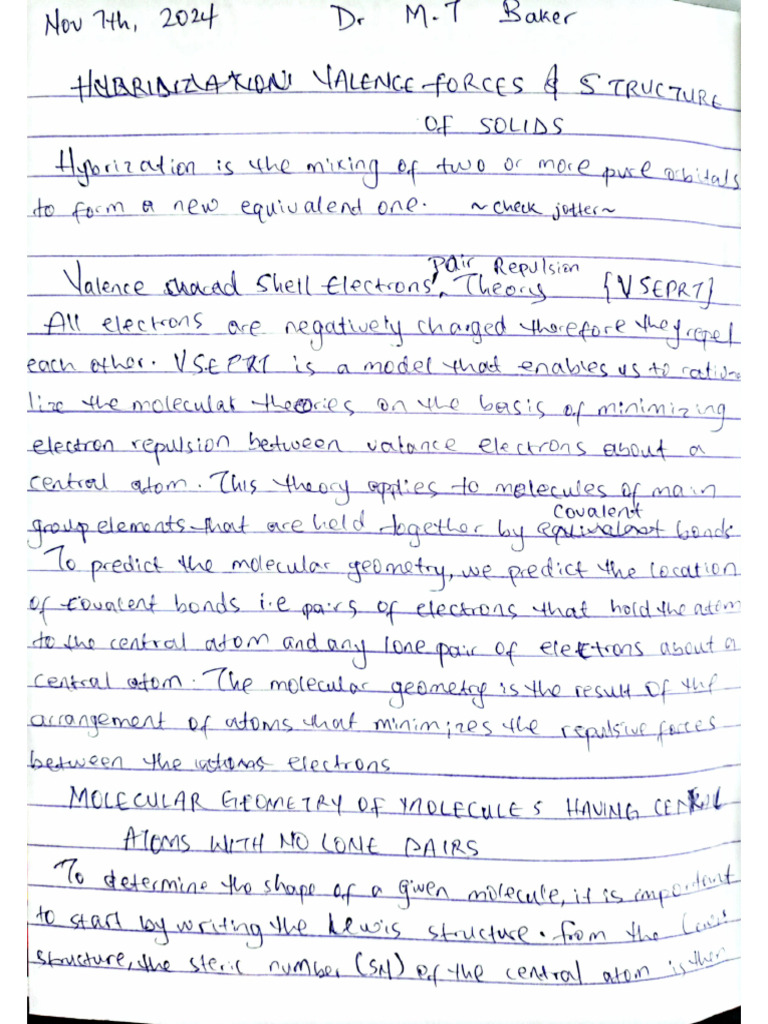 Nov 7th, 2024 Dr M.T Baker
HYBRIDIZATION: VALENCE FORCES & STRUCTURE
OF SOLIDS
Hybrization is the mixing of two or more pure orbitals
to form a new equivalend one. ~check jotter~
Valence shared Shell Electrons pair Repulsion Theory {VSEPRT}
All electrons are negatively charged therefore they repel
each other. VSEPRT is a model that enables us to ration-
lize the molecular theories on the basis of minimizing
electron repulsion between valance electrons about a
central atom. This theory applies to molecules of main
group elements that are held together by equivalent covalent bonds
To predict the molecular geometry, we predict the location
of covalent bonds i.e pairs of electrons that hold the atom
to the central atom and any lone pair of electrons about a
central atom. The molecular geometry is the result of the
arrangement of atoms that minimizes the repulsive forces
between the electrons
MOLECULAR GEOMETRY OF MOLECULES HAVING CENTRAL
ATOMS WITH NO LONE PAIRS
To determine the shape of a given molecule, it is important
to start by writing the Lewis structure. from the Lewis
structure, the steric number (SN) of the central atom is then